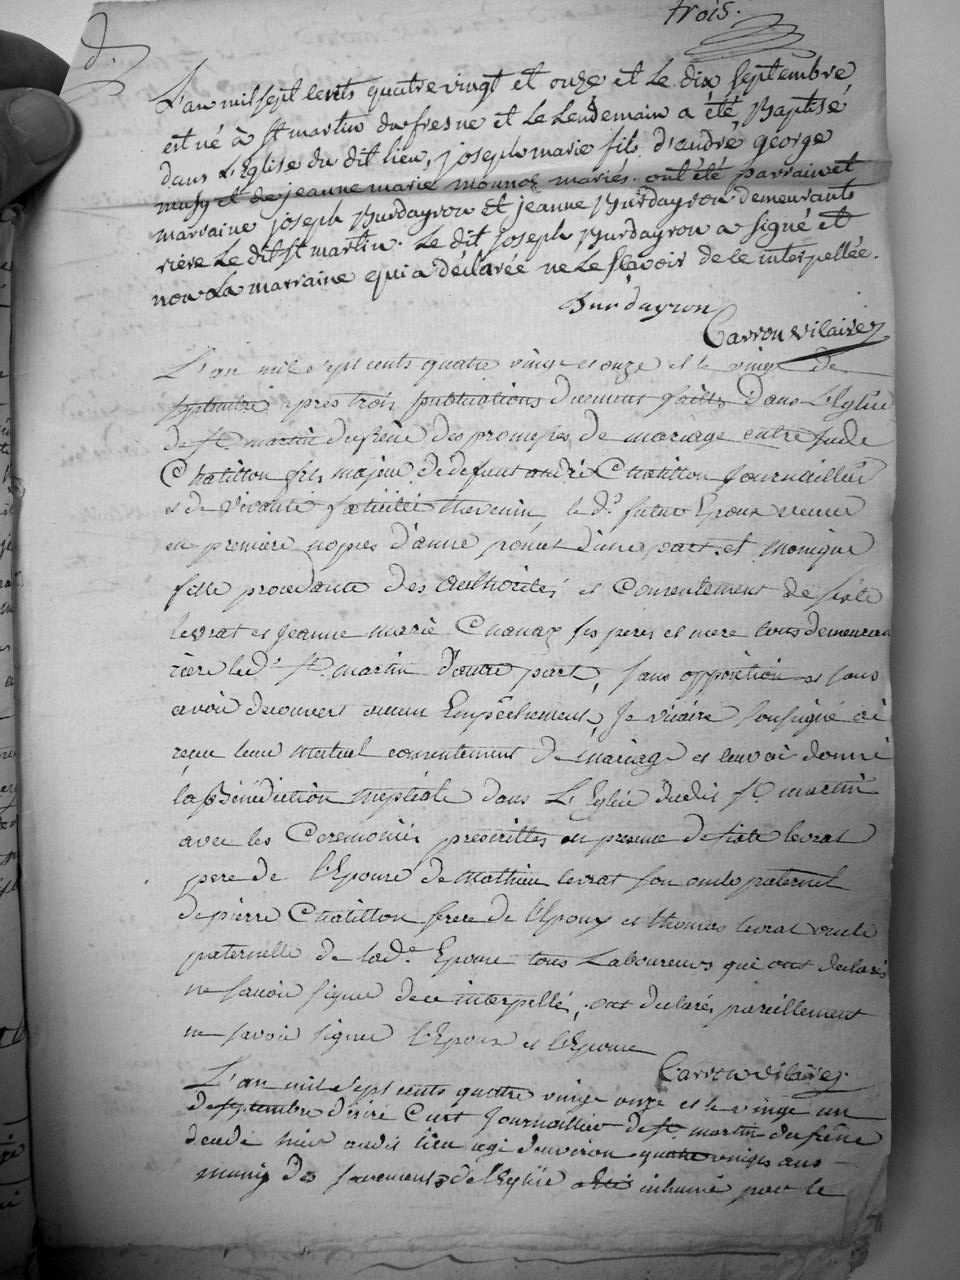 trois.
d.
L'an mil sept cents quatre vingt et onze et Le dix septembre
est né à st martin du fresne et Le Lendemain a été Baptisé
dans L'Eglise du dit lieu, joseph marie fils d'andré george
mussy et de jeanne marie monnoz mariés. ont été parrain et
marraine joseph Burdayron et jeanne Burdayron demeurants
rière Le dit st martin. Le dit joseph Burdayron a signé et
non La marraine qui a déclarée ne Le sçavoir de le interpellée.
Burdayron
Carron vicaire
L'an mil sept cents quatre vingt et onze et le vingt de
septembre apres trois publications duement faites dans L'Eglise
de st. martin du frene des promesses de mariage entre
Chatillon fils majeur de defunt andré Chatillon Journaillier
et de vivante thevenin le d. futur Epoux veuve
en première nopces d'anne d'une part. et monique
fille procedante des authorités et Consentement de
levrat et Jeanne marie Chanaz ses peres et mere tous demeurant
rière le d. st. martin d'autre part, sans opposition et sans
avoir decouvert aucun Empêchement, Je vicaire soussigné ai
recu leur mutuel consentement de mariage et leur ai donné
la Bénédiction nuptiale dans L'Eglise dudit st martin
avec les Ceremonies prescrittes en presence de levrat
pere de l'Epouse de mathieu levrat son oncle paternel
de pierre Chatillon frere de l'Epoux et thomas levrat oncle
paternelle de lad.e Epouse tous Laboureurs qui ont declarés
ne savoir signer de ce interpellé, ont declarés pareillement
ne savoir signer l'Epoux et l'Epouse
Carron vicaire
L'an mil sept cents quatre vingt onze et le vingt un
de septembre desiré Curt Journaillier de st. martin du frêne
decedé hier audit lieu agé d'environ quatre vingts ans
munis des sacrements de l'Eglise inhumé par le